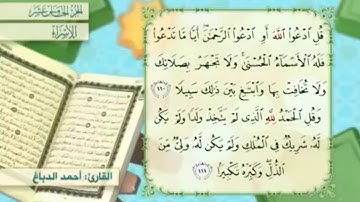 الجزء الخامس عشر
الإسراء
قُلِ ادْعُوا اللَّهَ أَوِ ادْعُوا الرَّحْمَٰنَ ۖ أَيًّا مَّا تَدْعُوا
فَلَهُ الْأَسْمَاءُ الْحُسْنَىٰ ۚ وَلَا تَجْهَرْ بِصَلَاتِكَ
وَلَا تُخَافِتْ بِهَا وَابْتَغِ بَيْنَ ذَٰلِكَ سَبِيلًا ١١٠
وَقُلِ الْحَمْدُ لِلَّهِ الَّذِي لَمْ يَتَّخِذْ وَلَدًا وَلَمْ يَكُن
لَّهُ شَرِيكٌ فِي الْمُلْكِ وَلَمْ يَكُن لَّهُ وَلِيٌّ مِّنَ
الذُّلِّ ۖ وَكَبِّرْهُ تَكْبِيرًا ١١١
القارئ: أحمد الدباغ